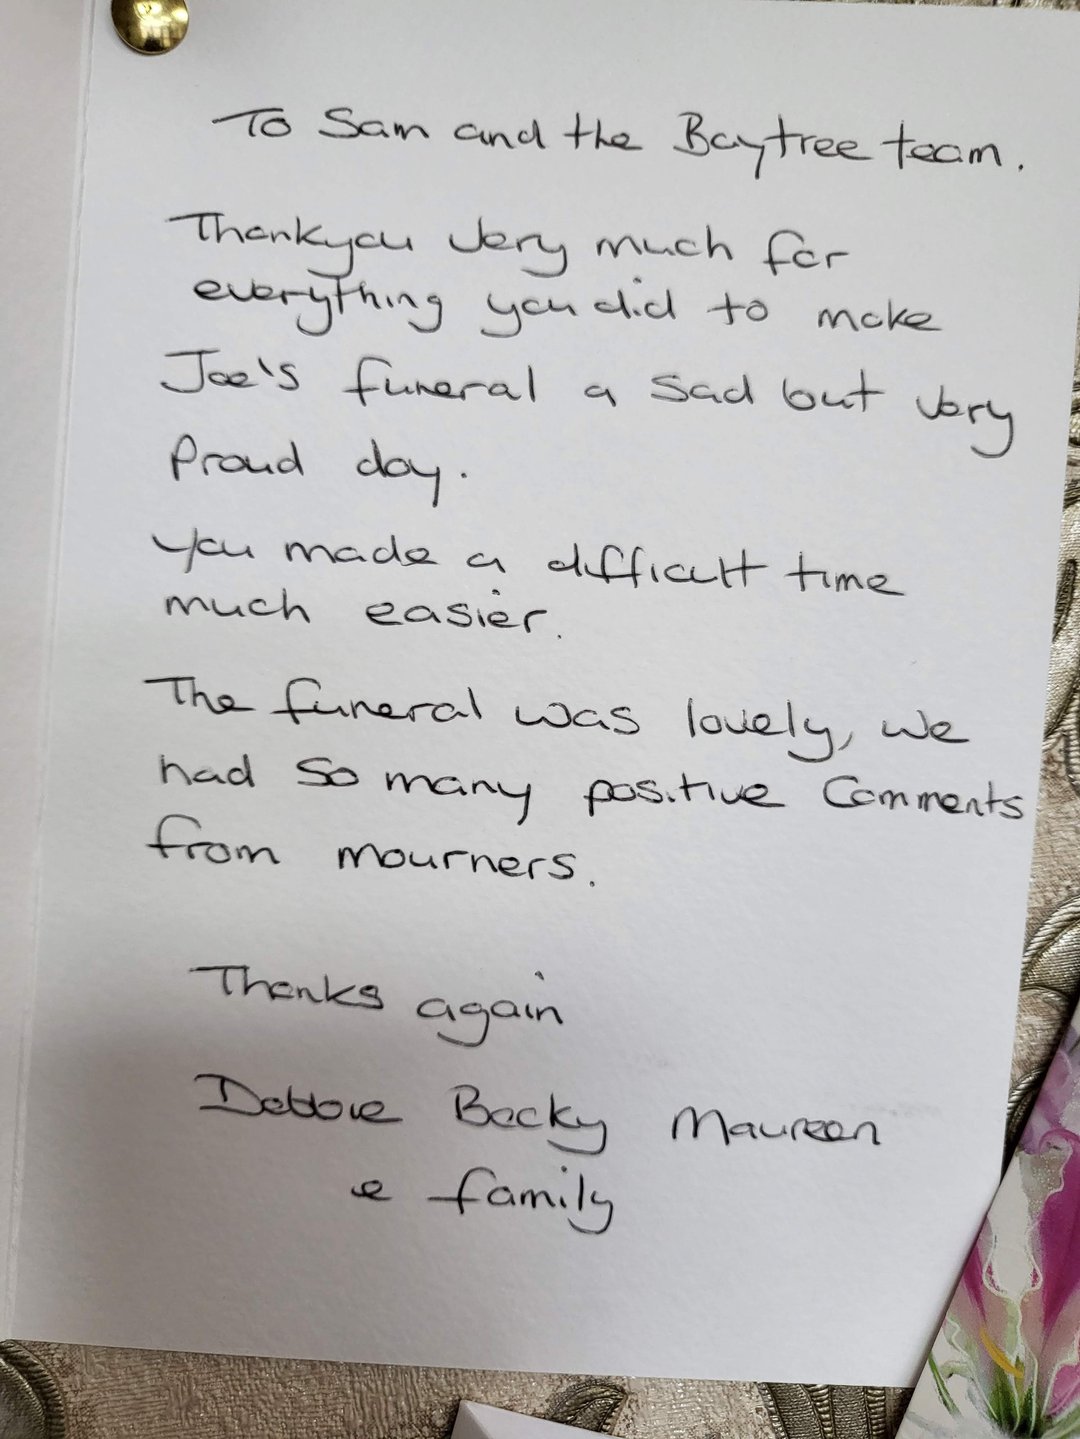 To Sam and the Baytree team.
Thankyou very much for
everything you did to make
Joe's funeral a sad but very
Proud day.
You made a difficult time
much easier.
The funeral was lovely, we
had so many positive Comments
from mourners.
Thanks again
Debbie Becky Maureen
e family